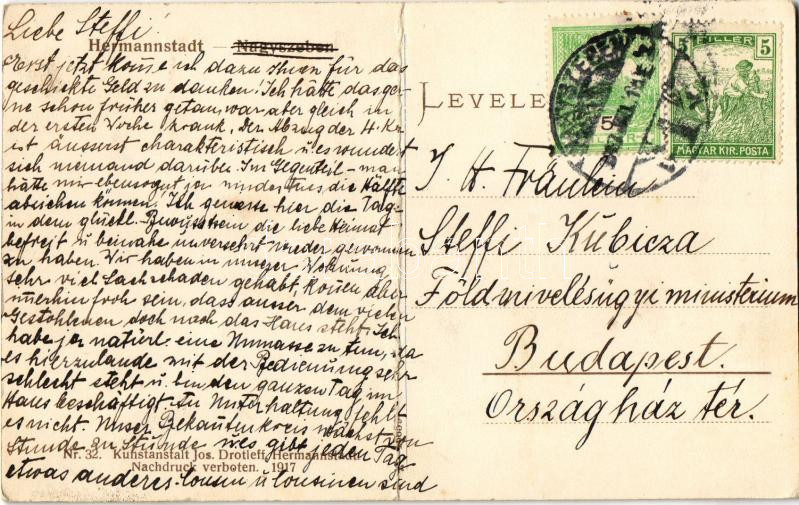 Liebe Steffi!
Hermannstadt — Nagyszeben
Erst jetzt komme ich dazu Ihnen für das
geschickte Geld zu danken. Ich hätte das ger-
ne schon früher getan, war aber gleich in
der ersten Woche krank. Der Abzug der 4 Kr
ist äusserst charakteristisch u. es wundert
sich niemand darüber. Im Gegenteil – man
hätte mir ebensogut
die Hälfte
abzeichen können. Ich geniesse hier die Tage
in dem glückl. Bewusstsein die liebe Heimat
befreit u. beinahe unversehrt wieder gewonnen
zu haben. Wir haben in unserer Wohnung
sehr viel Sachschaden gehabt, können aber
immerhin froh sein, dass ausser dem vielen
Gestohlenen doch noch das Haus steht. Ich
habe ja natürl. eine Unmasse zu tun, da
es hierzulande mit der Bedienung sehr
schlecht steht u. bin den ganzen Tag im
Haus beschäftigt. An Unterhaltung fehlt
es nicht. Unser Bekanntenkreis wächst von
Stunde zu Stunde u. es gibt jeden Tag
etwas anderes. Cousin u. Cousinen sind
Nr. 32. Kunstanstalt Jos. Drotleff, Hermannstadt
Nachdruck verboten. 1917
LEVELE
5
5 FILLÉR 5
MAGYAR KIR. POSTA
I. H. Fräulein
Steffi Kubicza
Földmivelésügyi ministerium
Budapest.
Országház tér.